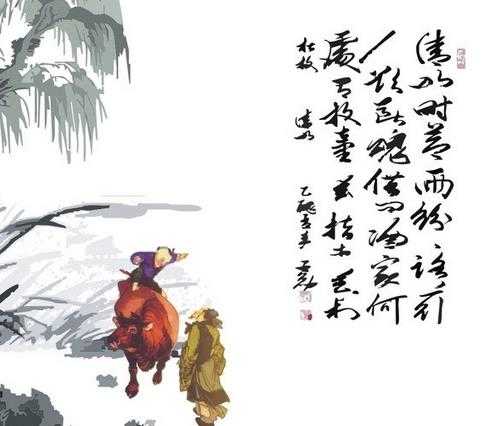 清明时节雨纷纷路上行
人欲断魂借问酒家何
處有牧童遥指杏花村
杜牧 清明